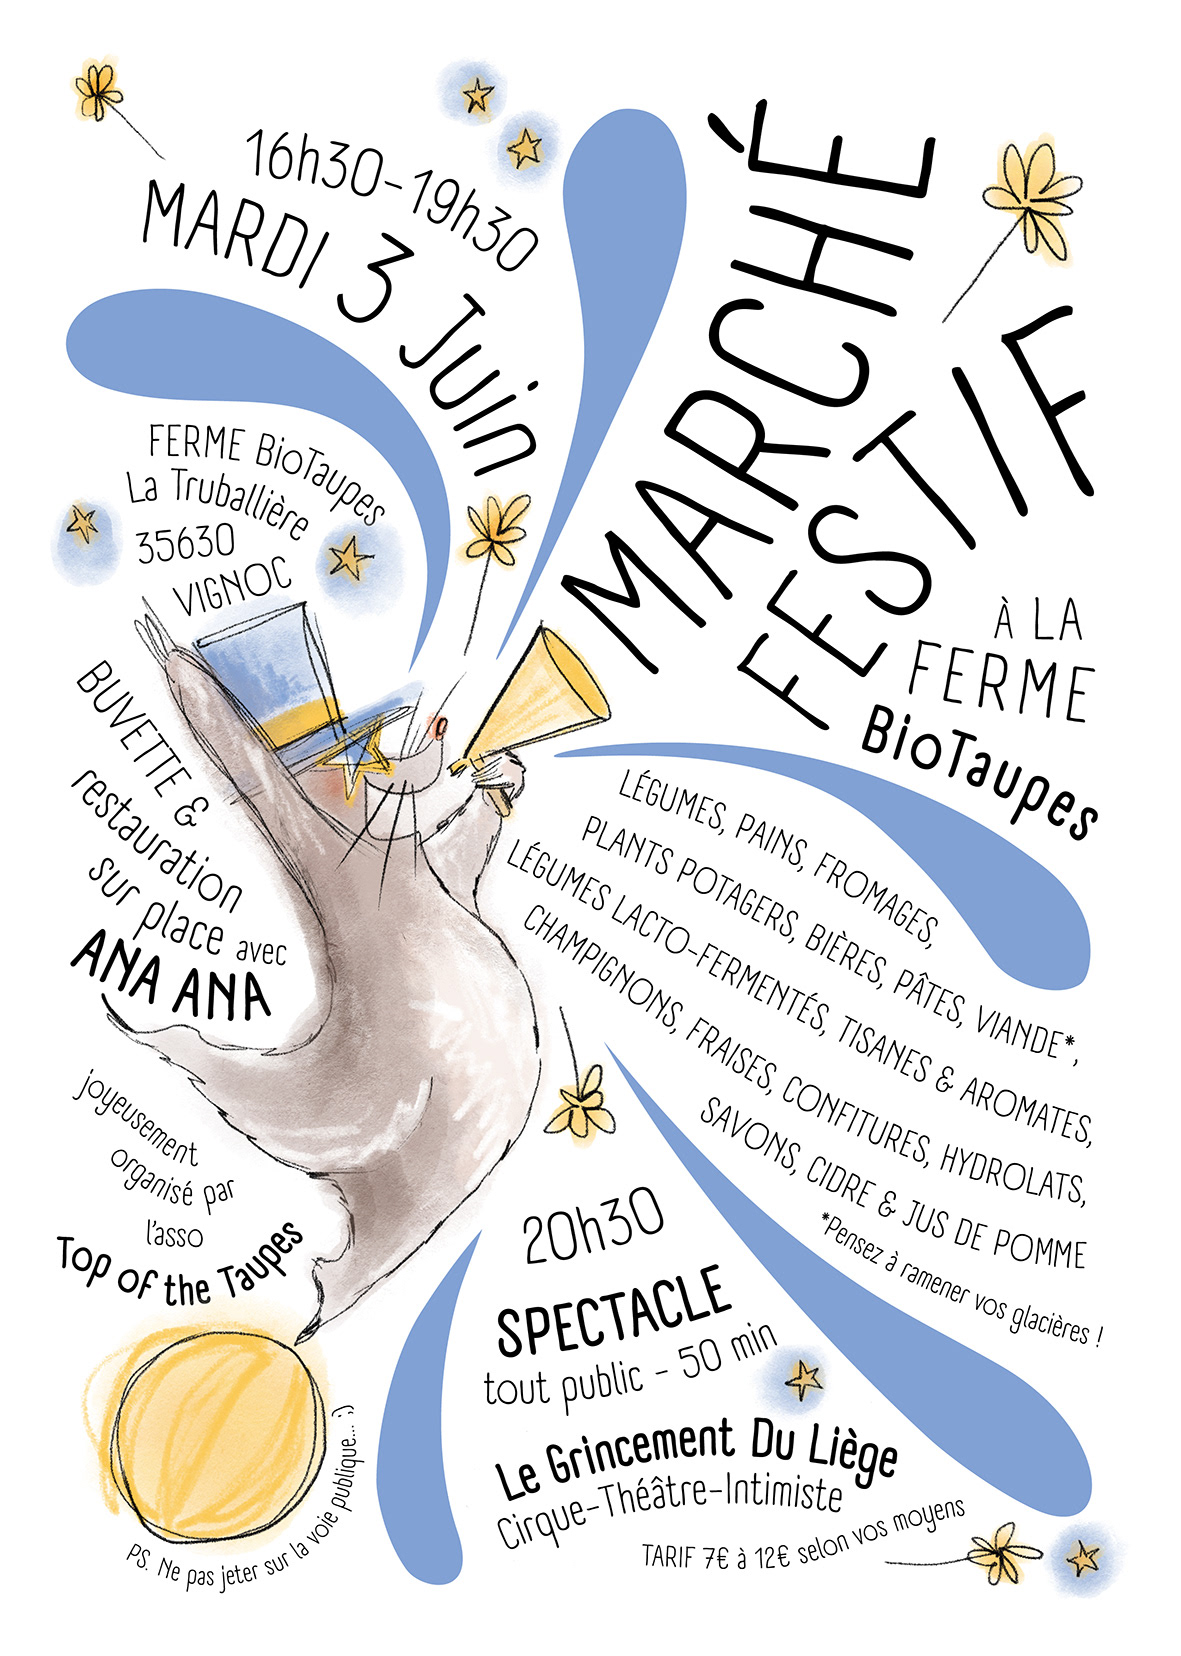 16h30-19h30
MARDI 3 Juin
MARCHÉ
FESTIF
À LA
FERME
BioTaupes
FERME BioTaupes
La Truballière
35630
VIGNOC
BUVETTE &
restauration
sur place avec
ANA ANA
LÉGUMES, PAINS, FROMAGES,
PLANTS POTAGERS, BIÈRES, PÂTES, VIANDE*,
LÉGUMES LACTO-FERMENTÉS, TISANES & AROMATES,
CHAMPIGNONS, FRAISES, CONFITURES, HYDROLATS,
SAVONS, CIDRE & JUS DE POMME
*Pensez à ramener vos glacières !
joyeusement
organisé par
l'asso
Top of the Taupes
20h30
SPECTACLE
tout public - 50 min
Le Grincement Du Liège
Cirque-Théâtre-Intimiste
TARIF 7€ à 12€ selon vos moyens
PS. Ne pas jeter sur la voie publique... ;)